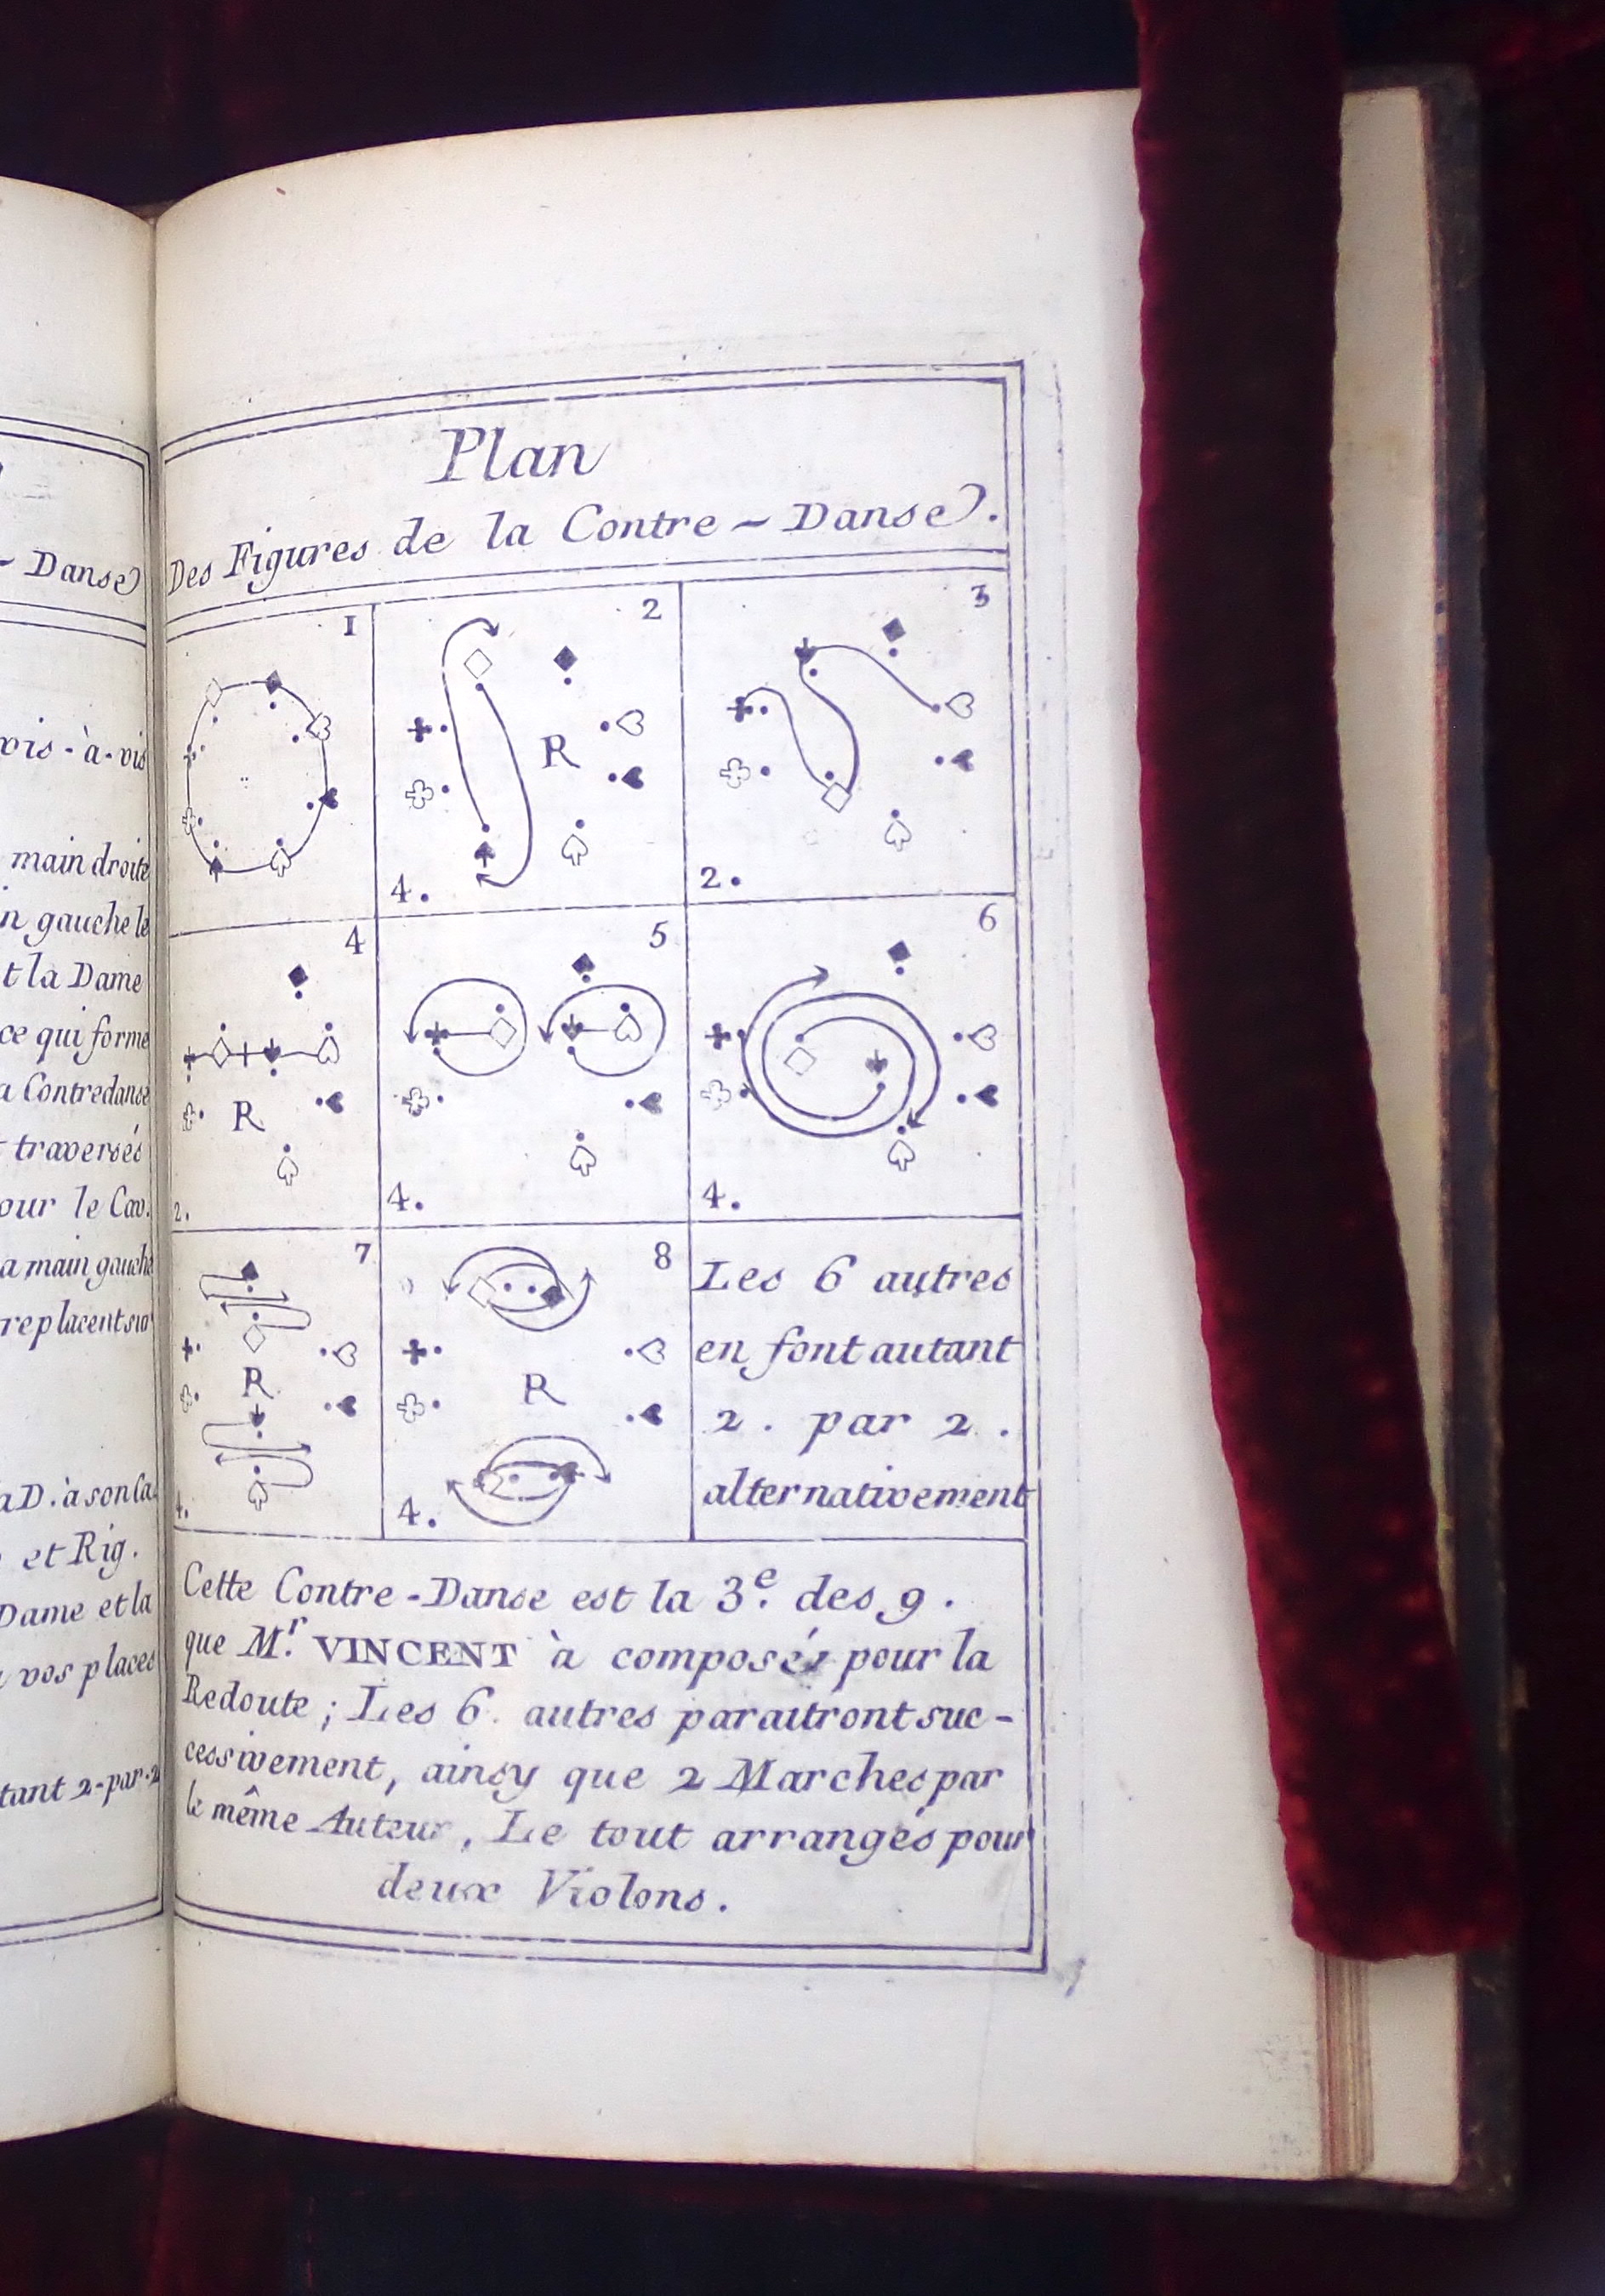 - Danse
vis-à-vis
main droite
n gauche le
t la Dame
ce qui forme
a Contredanse
t traversés
our le Cav.
a main gauche
replacent sur
a D. à son Ca.
et Rig.
Dame et la
vos places
tant 2-par-2
Plan
Des Figures de la Contre - Danse.
1
2
R
4.
3
2.
4
R
2.
5
4.
6
4.
7
R
4.
8
R
4.
Les 6 autres
en font autant
2. par 2.
alternativement
Cette Contre-Danse est la 3.e des 9.
que M.r VINCENT à composés pour la
Redoute; Les 6. autres paraitront suc-
cessivement, ainsy que 2 Marches par
le même Auteur, Le tout arrangés pour
deux Violons.